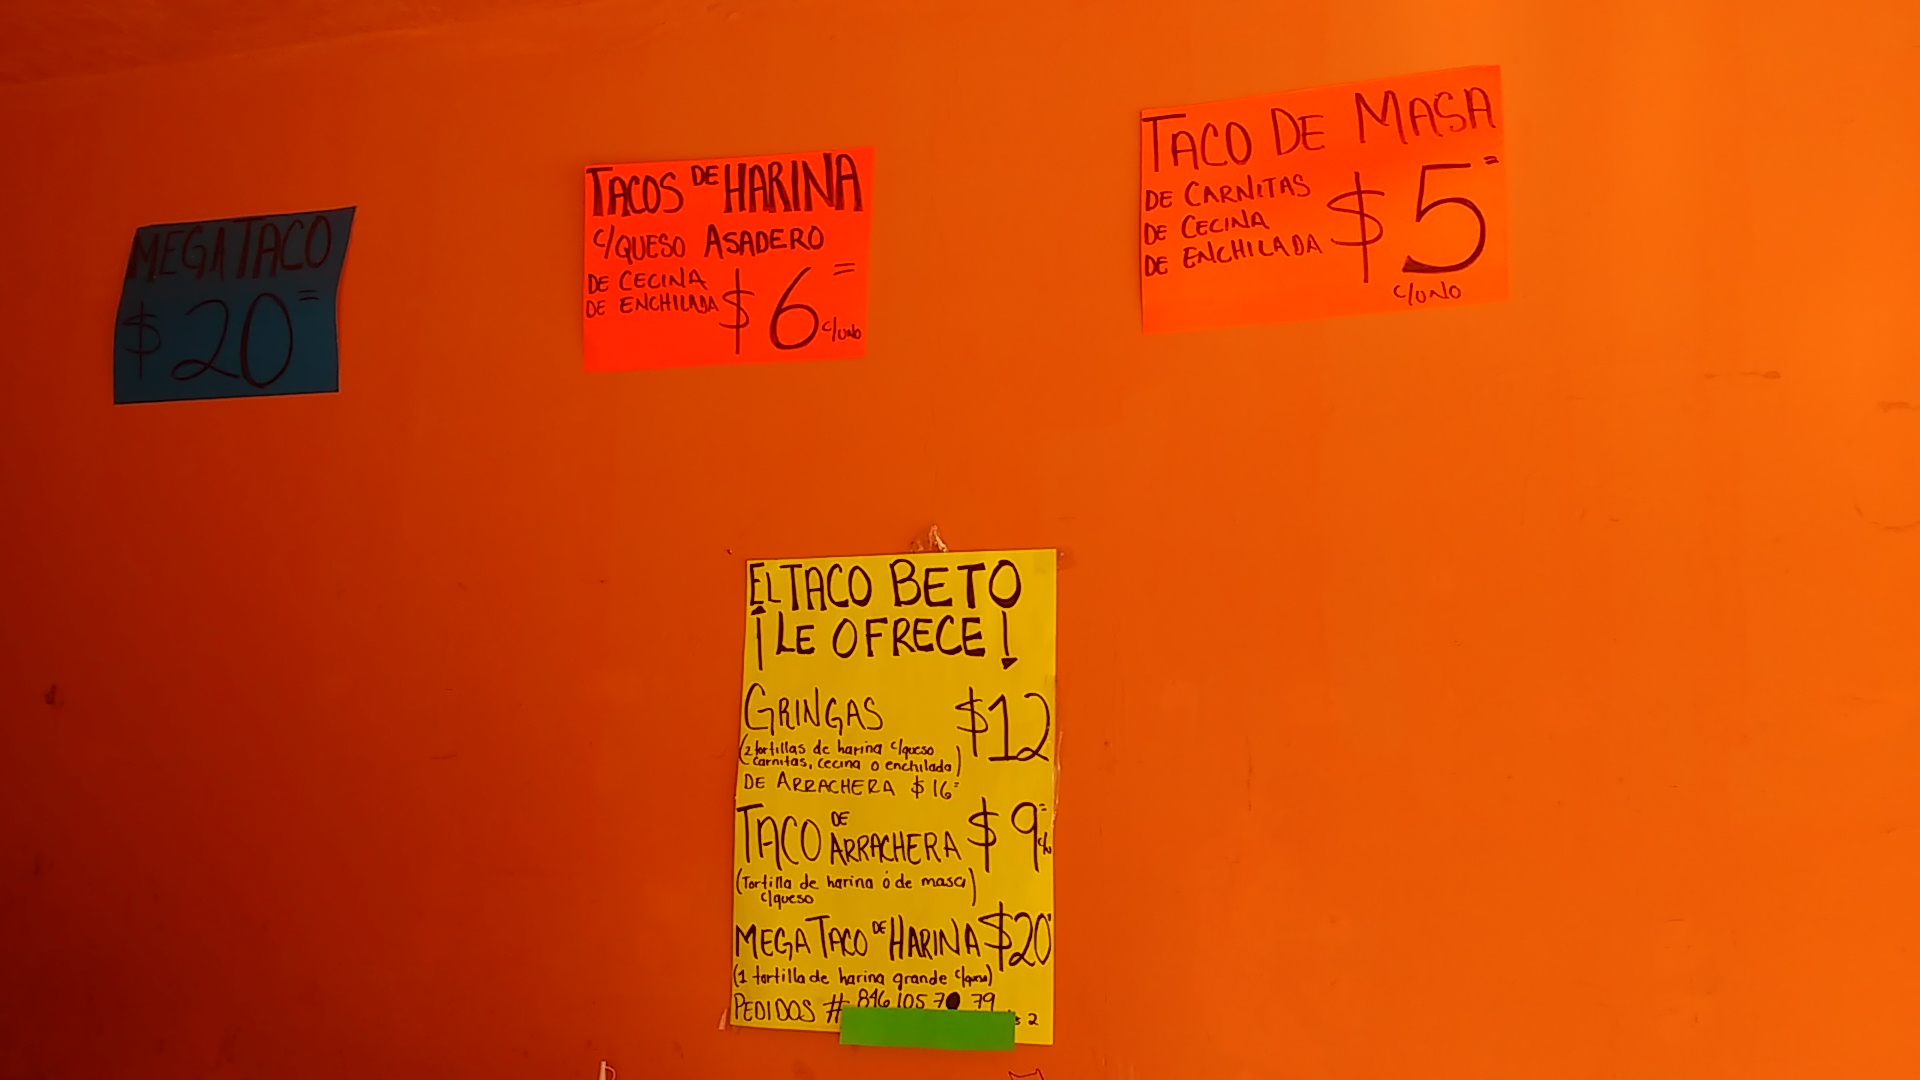 MEGA TACO
$20=
TACOS DE HARINA
C/QUESO ASADERO
DE CECINA
DE ENCHILADA
$6= c/uno
TACO DE MASA
DE CARNITAS
DE CECINA
DE ENCHILADA
$5=
C/UNO
EL TACO BETO
¡LE OFRECE!
GRINGAS $12
(2 tortillas de harina c/queso
carnitas, cecina o enchilada)
DE ARRACHERA $16=
TACO DE ARRACHERA $9= c/u
(Tortilla de harina ó de masa)
c/queso
MEGA TACO DE HARINA $20
(1 tortilla de harina grande c/queso)
PEDIDOS # 846 105 70 79
2